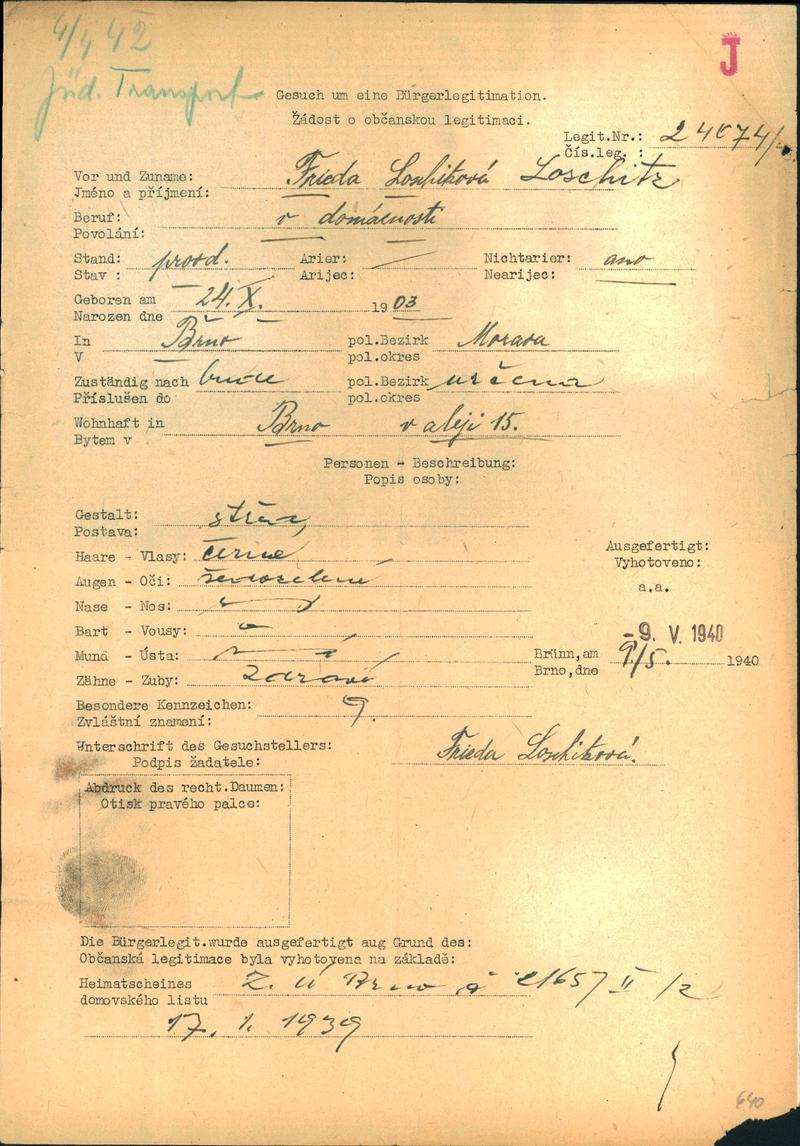 4/4 42
J
Jüd. Transport
Gesuch um eine Bürgerlegitimation.
Žádost o občanskou legitimaci.
Legit.Nr.: 24674/
Čís.leg. :
Vor und Zuname: Frieda Loschitzová Loschitz
Jméno a příjmení:
Beruf: v domácnosti
Povolání:
Stand: provd. Arier: / Nichtarier: ano
Stav : Arijec: Nearijec:
Geboren am 24. X. 1903
Narozen dne
In Brno pol.Bezirk Morava
V pol.okres
Zuständig nach bude pol.Bezirk určena
Příslušen do pol.okres
Wohnhaft in Brno v aleji 15.
Bytem v
Personen - Beschreibung:
Popis osoby:
Gestalt:
Postava:
Haare - Vlasy: černé
Ausgefertigt:
Vyhotoveno:
Augen - Oči: šedozelené
a.a.
Nase - Nos:
Bart - Vousy: -
-9. V. 1940
Mund - Ústa:
Brünn,am 9/5. 1940
Brno,dne
Zähne - Zuby: zdravé
Besondere Kennzeichen:
Zvláštní znamení:
Unterschrift des Gesuchstellers: Frieda Loschitzová.
Podpis žadatele:
Abdruck des recht.Daumen:
Otisk pravého palce:
Die Bürgerlegit.wurde ausgefertigt aug Grund des:
Občanská legitimace byla vyhotovena na základě:
Heimatscheines Z. ú Brno č 21657 II /2
domovského listu
17. 1. 1939
640